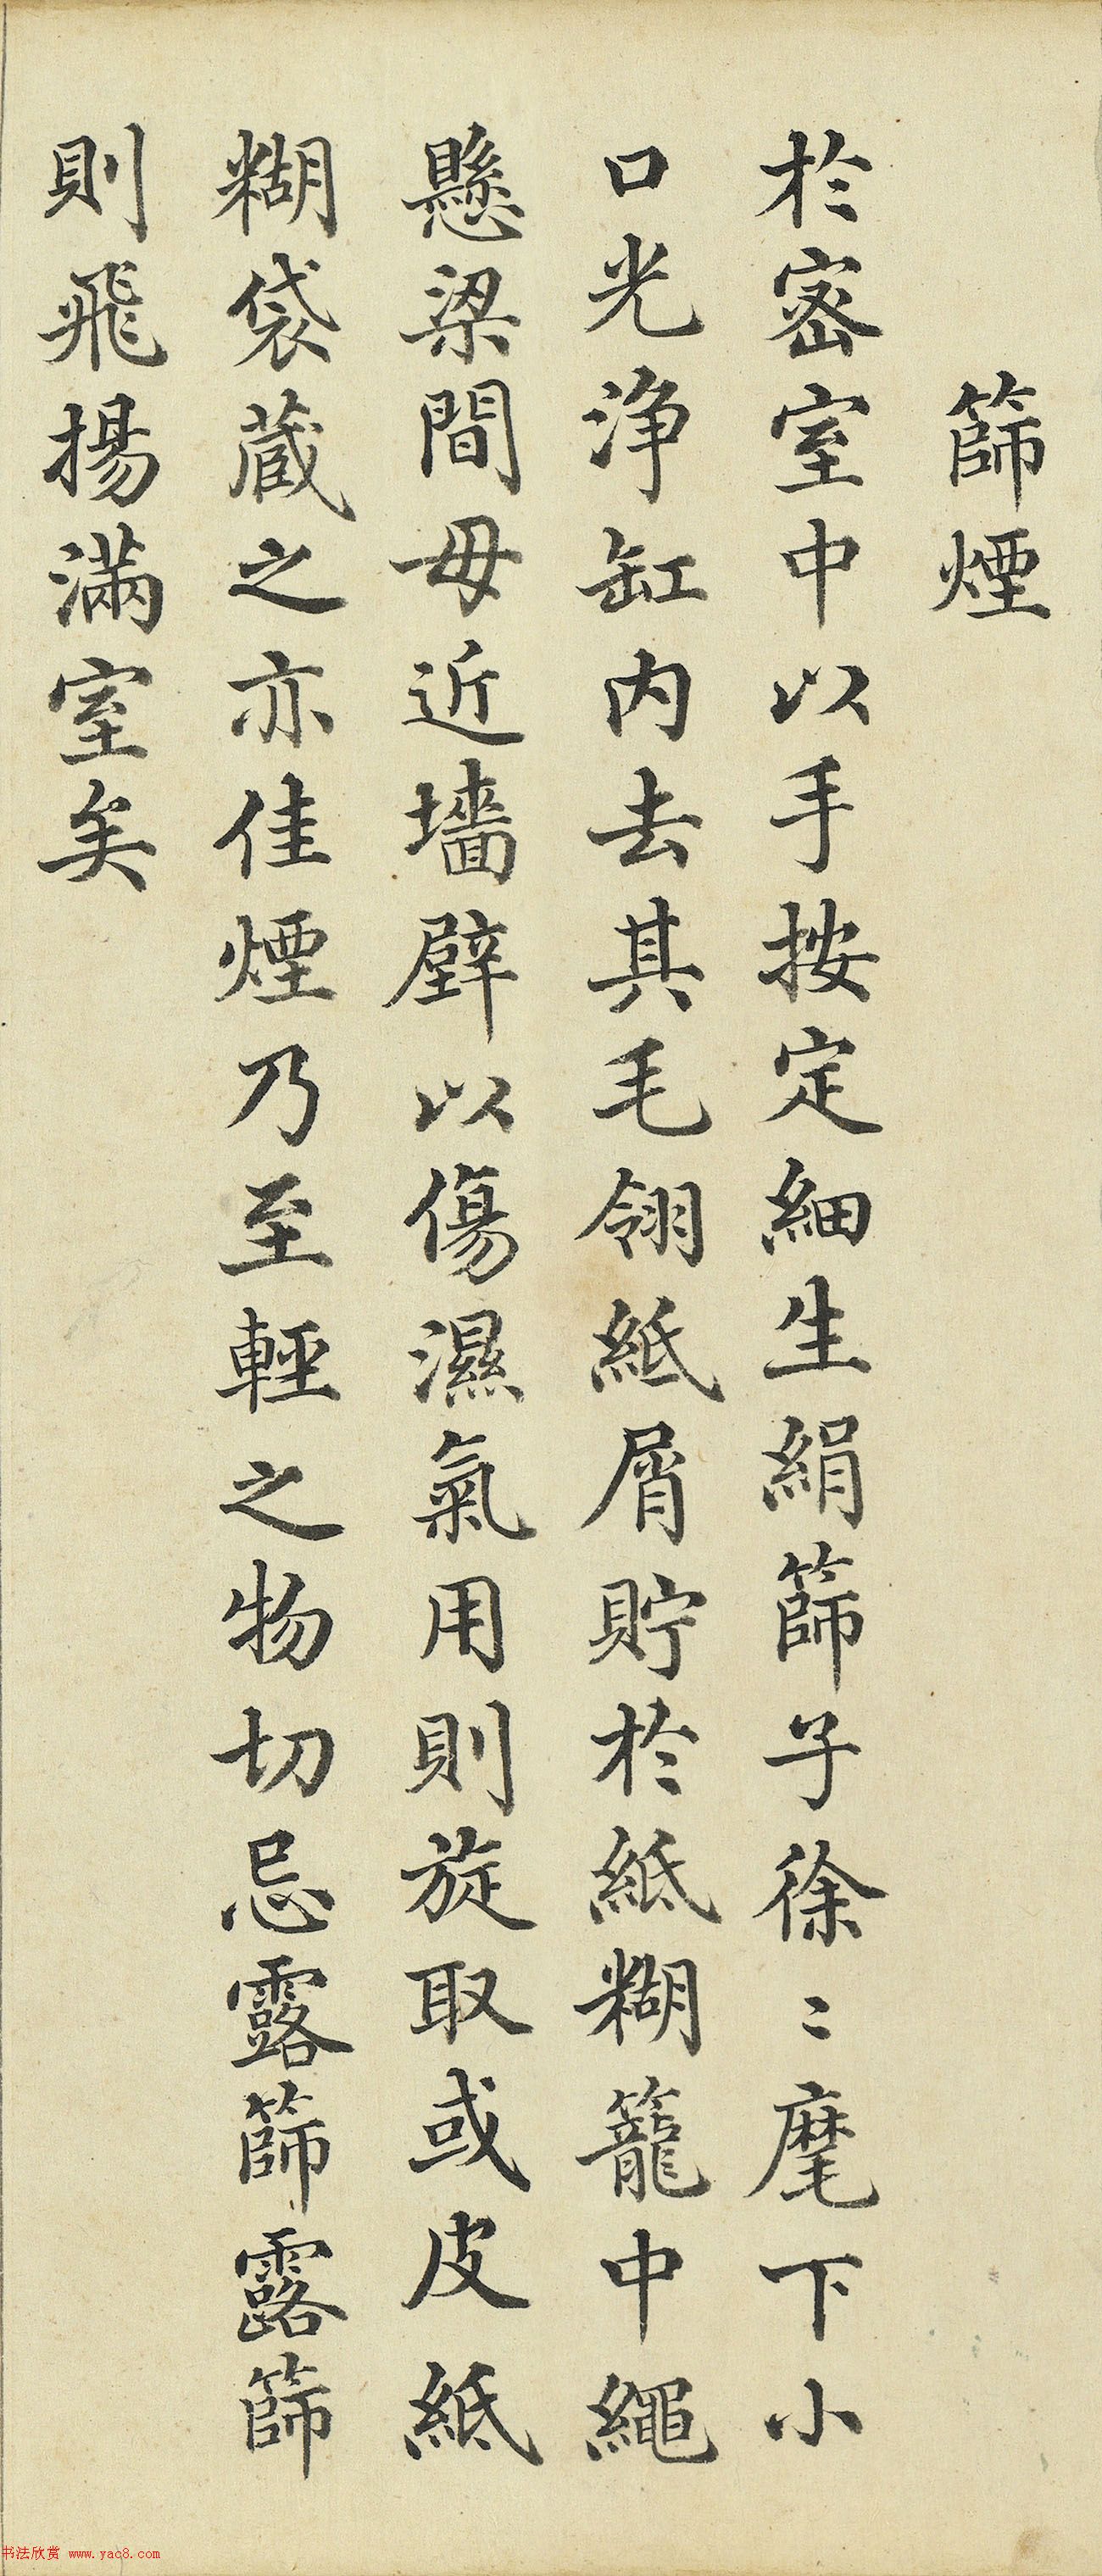 篩煙
於密室中以手按定細生絹篩子徐〻麾下小
口光浄缸内去其毛翎紙屑貯於紙糊籠中繩
懸梁間毋近墻壁以傷濕氣用則旋取或皮紙
糊袋蔵之亦佳煙乃至輕之物切忌露篩露篩
則飛揚滿室矣
书法欣赏 www.yac8.com